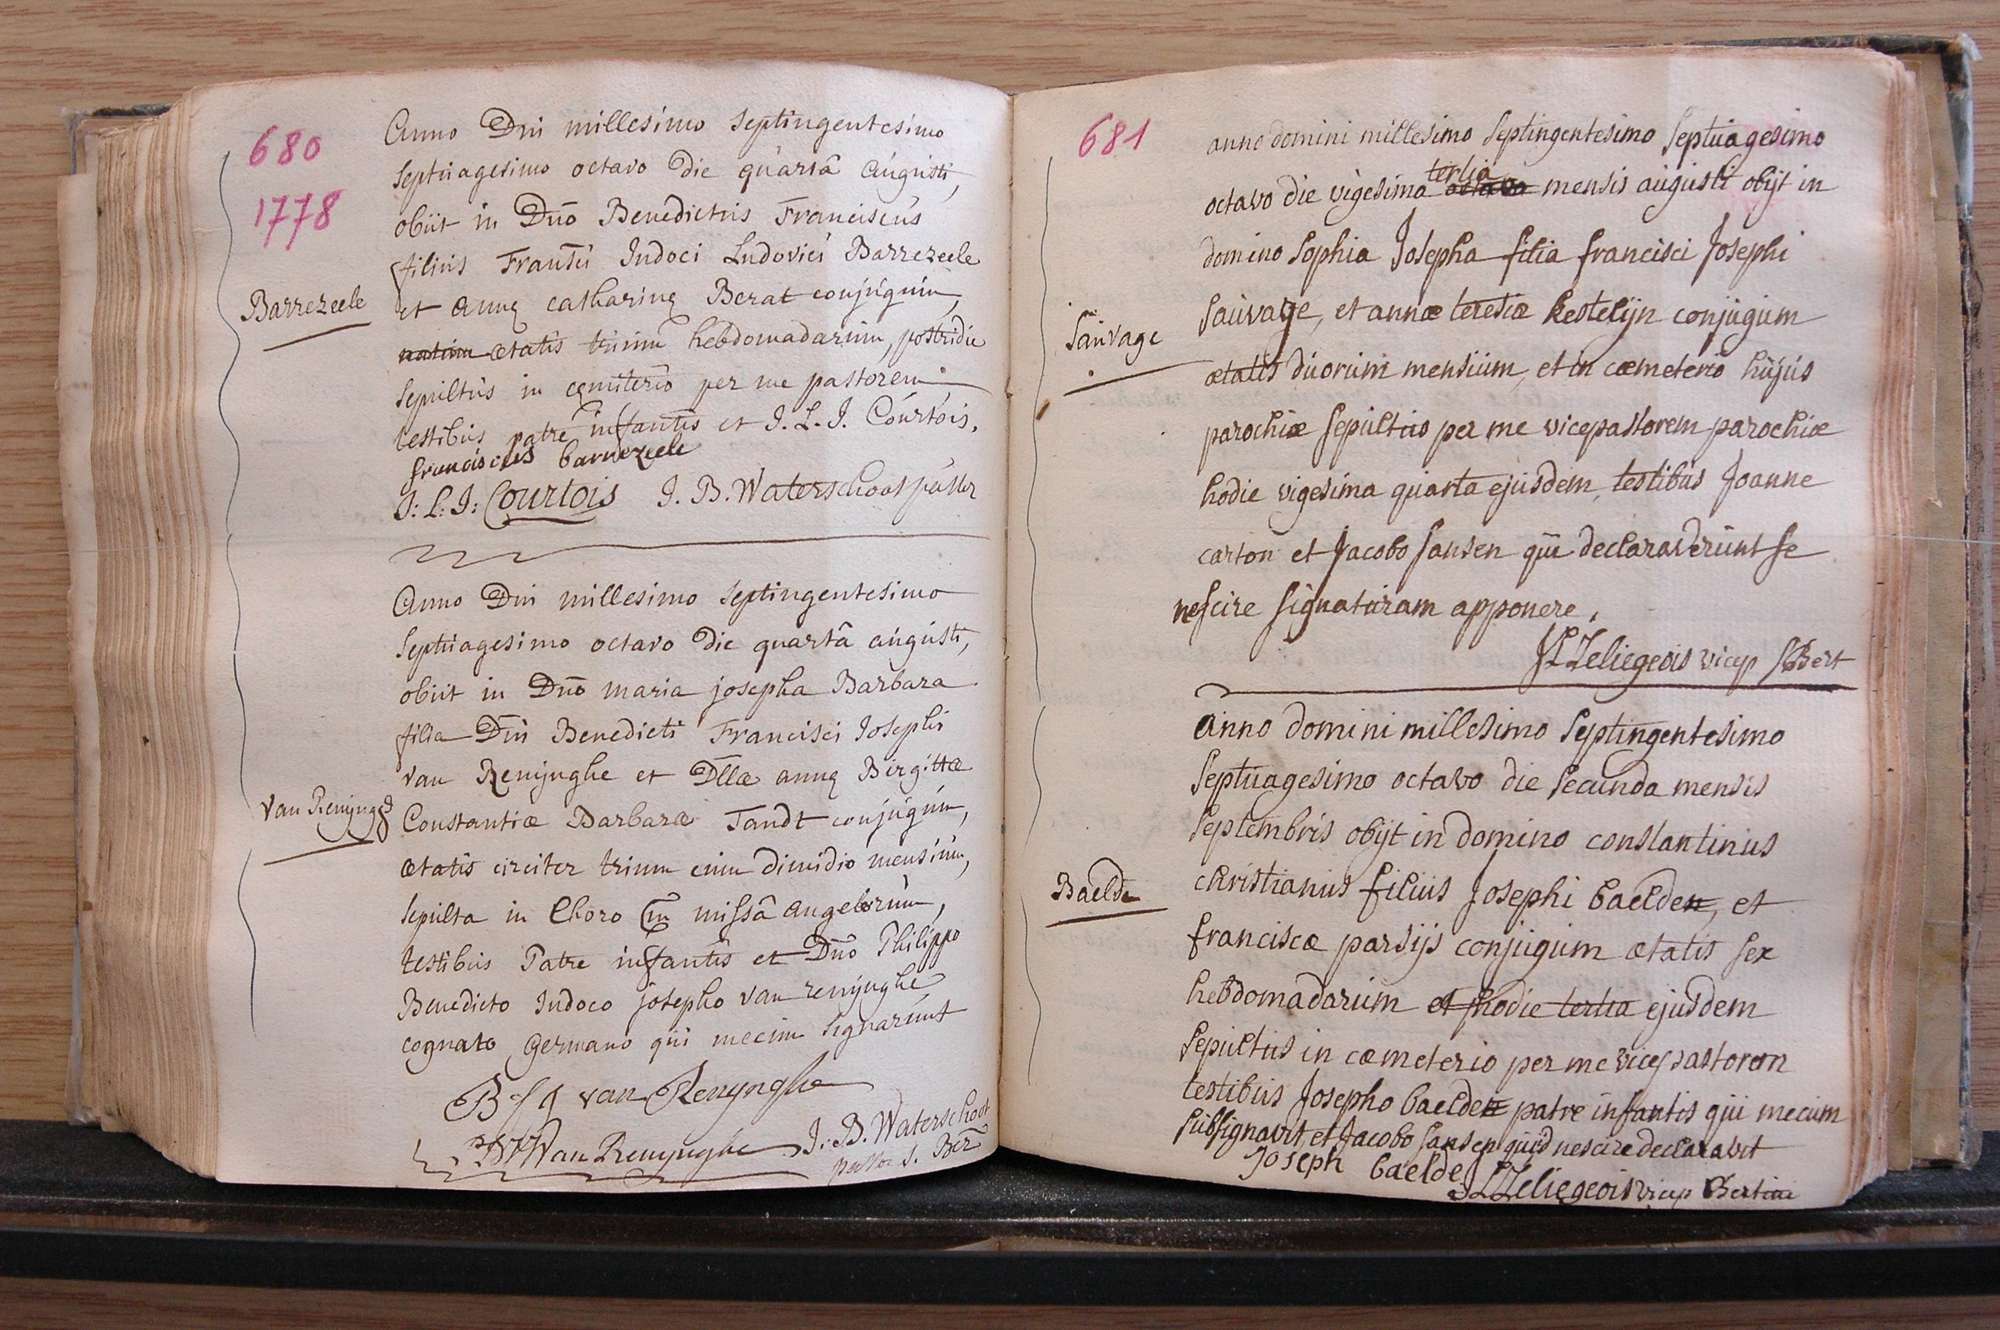 680
1778
Anno Dni millesimo septingentesimo
septuagesimo octavo die quartâ augusti,
obiit in Dno Benedictus Franciscus
filius Fransci Judoci Ludovici Barrezeele
Barrezeele
et annę catharinę Berat conjugum,
natim ætatis trium hebdomadarum, postridie
sepultus in cęmiterio per me pastorem
testibus patre infantis et J. L. J. Courtois,
franciscus barrezeele
J: L: J: Courtois J. B. Waterschoot pastor
Anno Dni millesimo septingentesimo
septuagesimo octavo die quartâ augusti,
obiit in Dno maria josepha Barbara
filia Dni Benedicti Francisci Josephi
van Renynghe et Dllæ annę Birgittæ
van Renyngh
Constantiæ Barbaræ Tandt conjugum,
ætatis circiter trium cum dimidio mensium,
sepulta in Choro cum missâ angelorum,
testibus Patre infantis et Dno Philippo
Benedicto Judoco josepho van renynghe
cognato germano qui mecum signarunt
van Renynghe
Van Renynghe J: B. Waterschoot
pastor s. Bert
681
anno domini millesimo septingentesimo septuagesimo
tertia
octavo die vigesima octavo mensis augusti obijt in
domino Sophia Josepha filia francisci Josephi
Sauvage
sauvage, et annæ teresiæ kestelijn conjugum
ætatis duorum mensium, et in cæmeterio hujus
parochiæ sepultus per me vicepastorem parochiæ
hodie vigesima quarta ejusdem, testibus Joanne
carton et Jacobo sansen qui declaraverunt se
nescire signaturam apponere.
Zeliegeois vicep s Bert
anno domini millesimo septingentesimo
septuagesimo octavo die secunda mensis
septembris obijt in domino constantinus
Baelde
christianus filius Josephi baelden, et
franciscæ parsijs conjugum ætatis sex
hebdomadarum et hodie tertia ejusdem
sepultus in cæmeterio per me vicepastorem
testibus Josepho baelden patre infantis qui mecum
subsignavit, et Jacobo sansen quid nescire declaravit
Joseph baelde Zeliegeois vicep Bertini